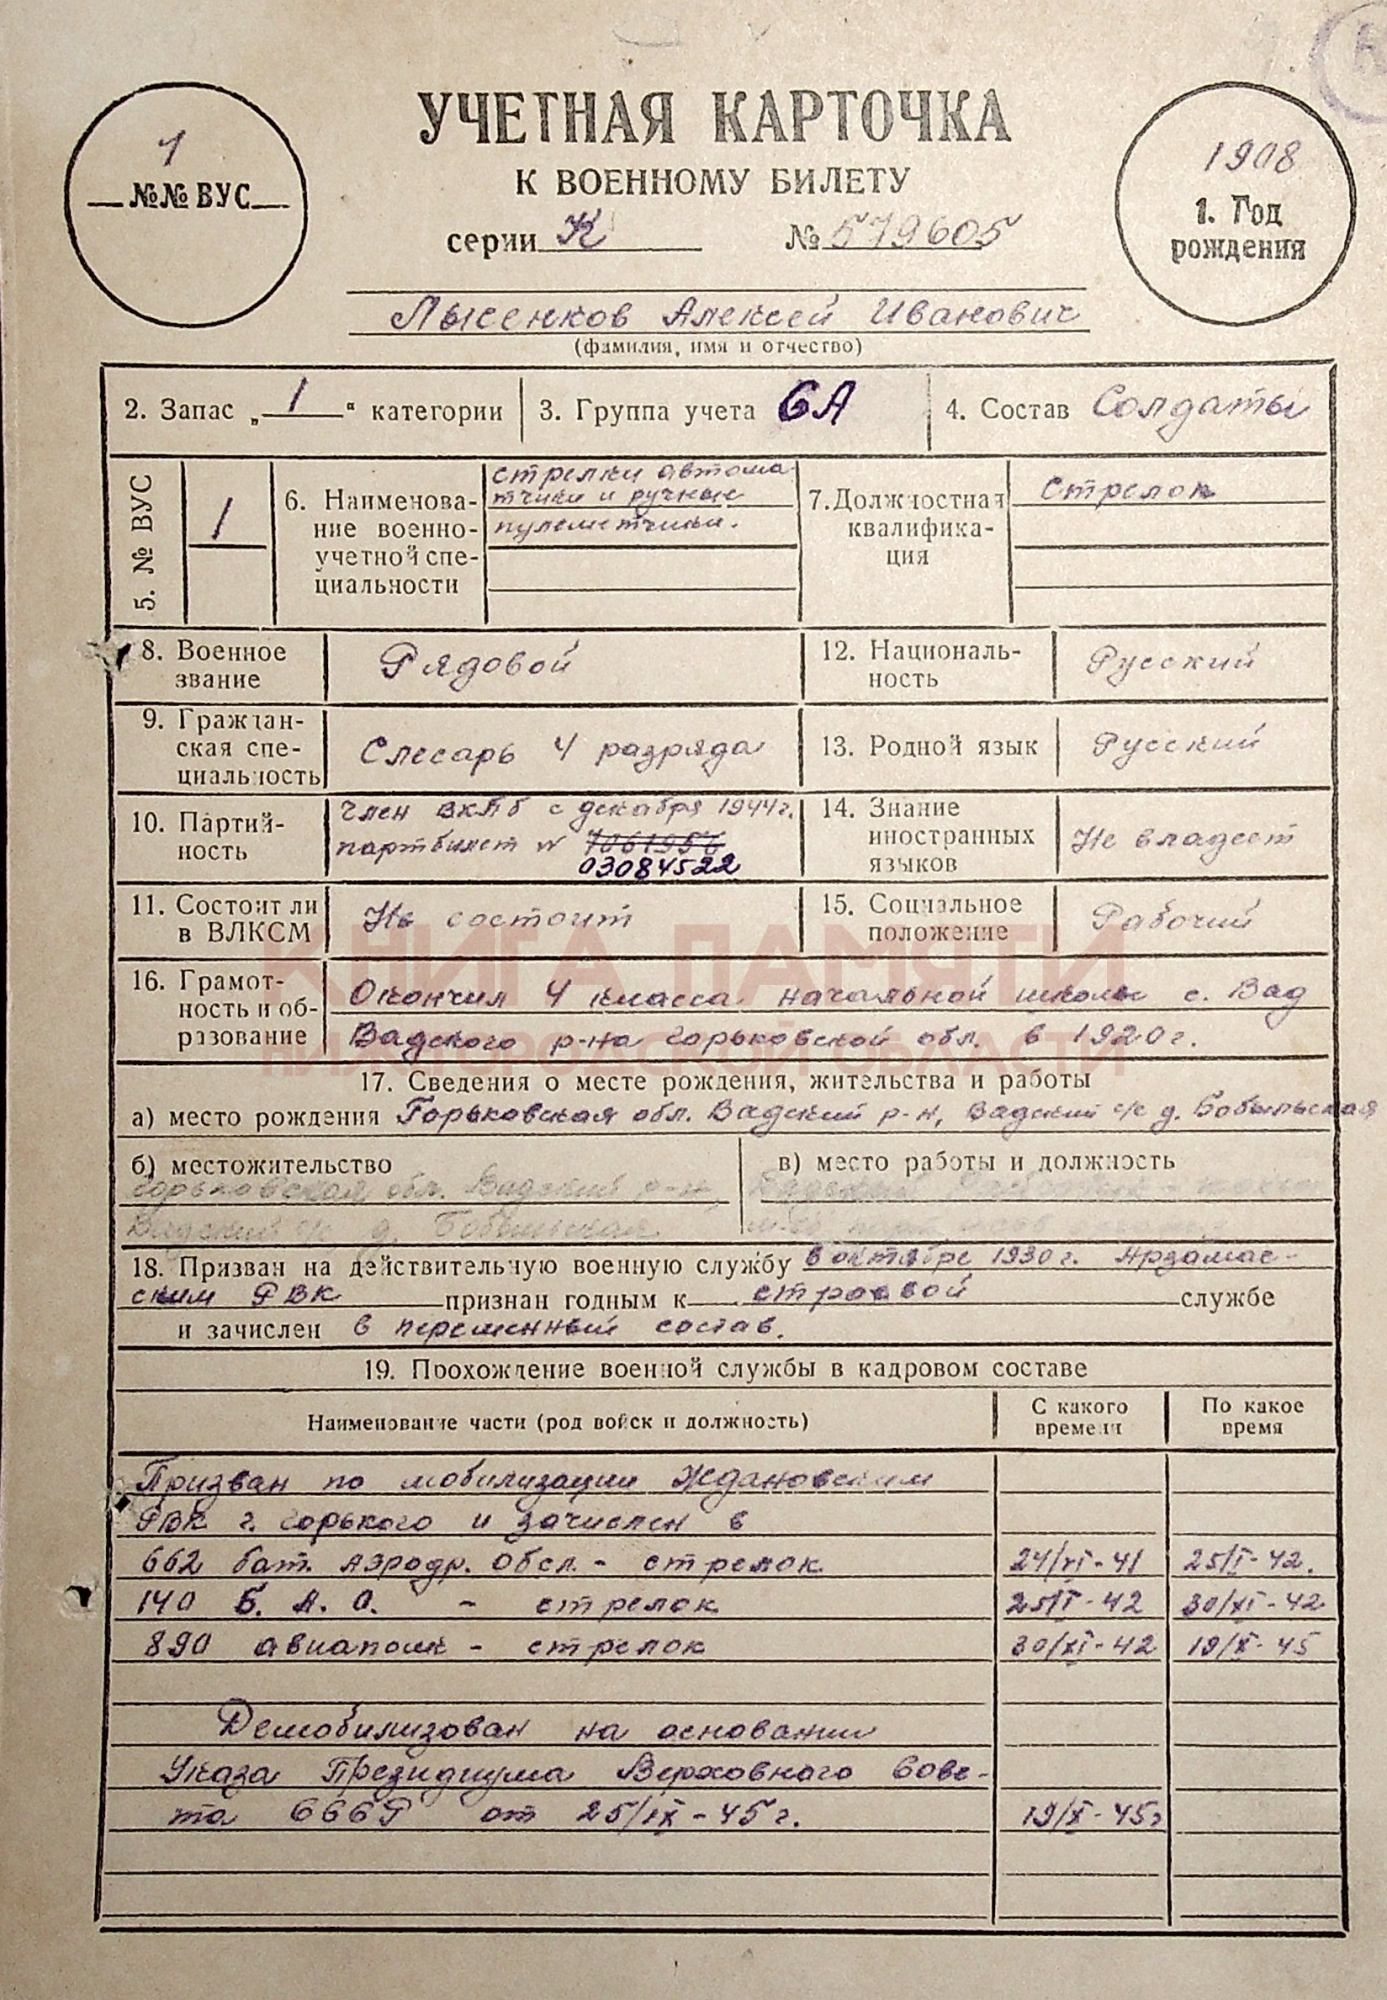 УЧЕТНАЯ КАРТОЧКА
К ВОЕННОМУ БИЛЕТУ
серии К № 579605
1
№№ ВУС
1908
1. Год
рождения
Лысенков Алексей Иванович
(фамилия, имя и отчество)
2. Запас „ 1 “ категории
3. Группа учета СА
4. Состав Солдаты
5. № ВУС
1
6. Наименова-
ние военно-
учетной спе-
циальности
стрелки автома-
тчики и ручные
пулеметчики.
7. Должностная
квалифика-
ция
Стрелок
8. Военное
звание
Рядовой
12. Националь-
ность
Русский
9. Граждан-
ская спе-
циальность
Слесарь 4 разряда
13. Родной язык
Русский
10. Партий-
ность
член ВКПб с декабря 1944г.
партбилет № 7061956
03084522
14. Знание
иностранных
языков
Не владеет
11. Состоит ли
в ВЛКСМ
Не состоит
15. Социальное
положение
Рабочий
КНИГА ПАМЯТИ
НИЖЕГОРОДСКОЙ ОБЛАСТИ
16. Грамот-
ность и об-
разование
Окончил 4 класса начальной школы с. Вад
Вадского р-на Горьковской обл. в 1920г.
17. Сведения о месте рождения, жительства и работы
а) место рождения Горьковская обл. Вадский р-н, Вадский с/с д. Бобыльская
б) местожительство
Горьковская обл. Вадский р-н,
Вадский с/с, д. Бобыльская
в) место работы и должность
18. Призван на действительную военную службу в октябре 1930г. Арзамас-
ским РВК признан годным к строевой службе
и зачислен в переменный состав.
19. Прохождение военной службы в кадровом составе
Наименование части (род войск и должность)
С какого
времени
По какое
время
Призван по мобилизации Ждановским
РВК г. Горького и зачислен в
662 бат. Аэродр. Обсл. - стрелок 24/VI-41 25/I-42.
140 Б. А. О. - стрелок 25/I-42 30/XI-42
890 авиаполк - стрелок 30/XI-42 19/X-45
Демобилизован на основании
Указа Президиума Верховного Сове-
та СССР от 25/IX-45г. 19/X-45г